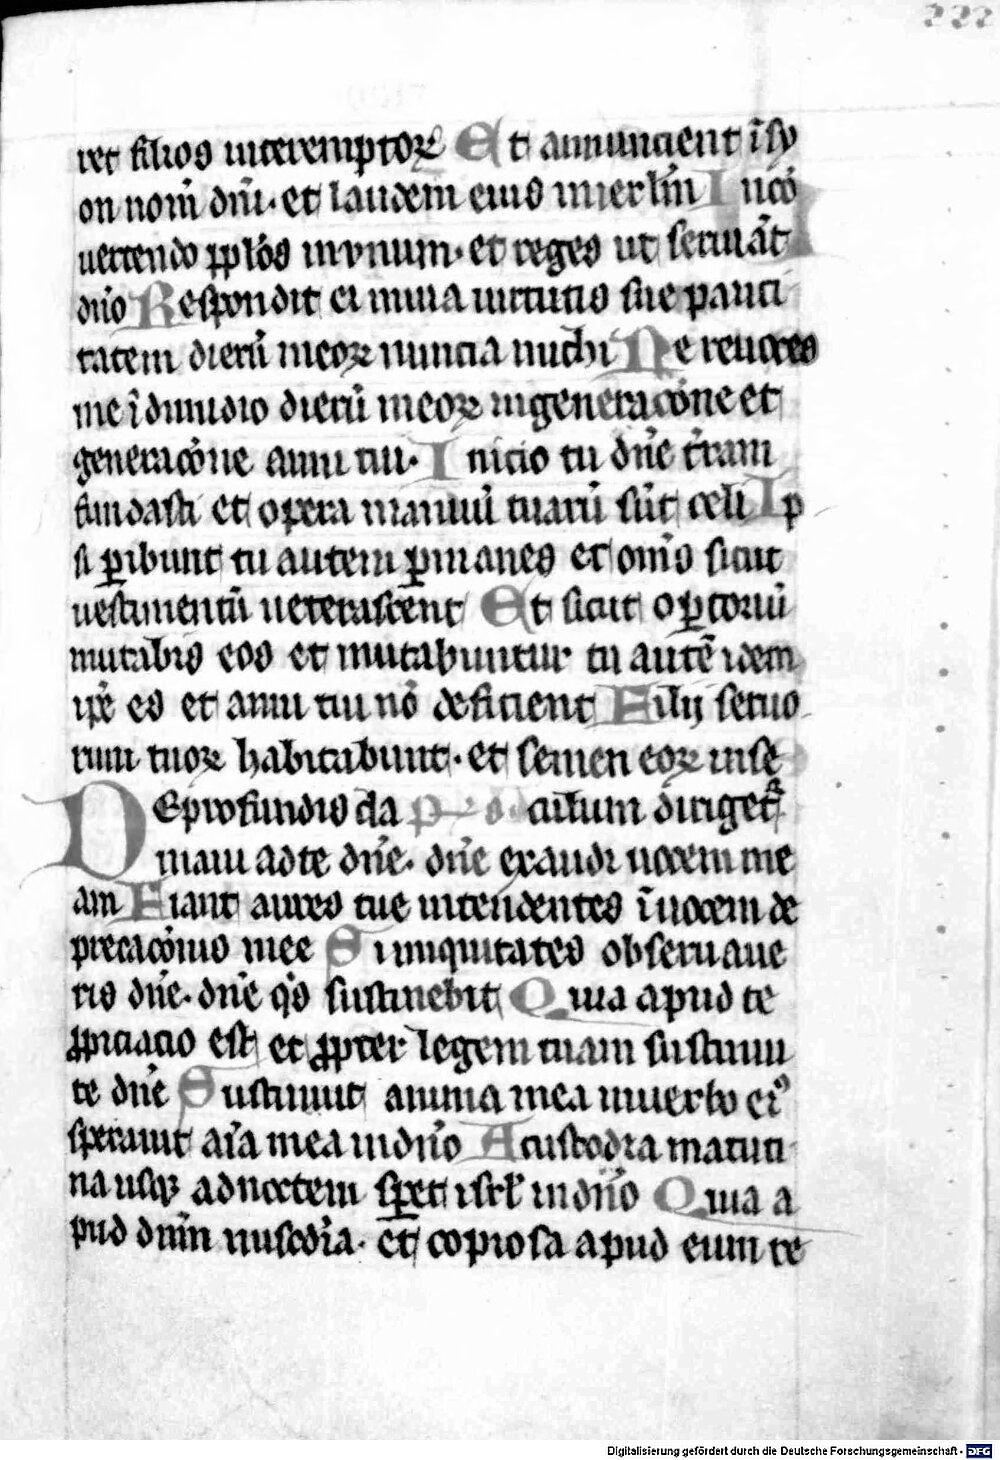 222
ret filios interemptoꝝ Et annuncient ī sy
on nom̄ dn̄i· et laudem eius in ierlm̄ In cō
uertendo ꝓplōs in vnum· et reges ut seruiāt
dn̄o Respondit ei in uia uirtutis sue pauci
tatem dierū meoꝝ nuncia michi Ne reuoces
me ī dimidio dierū meoꝝ in generac̄one et
generac̄one anni tui· Inicio tu dn̄e t̄ram
fundasti et opera manuū tuarū sūt celi Ip
si ꝑibunt tu autem ꝑmanes et om̄s sicut
uestimentū ueterascent Et sicut oꝑtoriū
mutabis eos et mutabuntur tu autē idem
ip̄e es et anni tui nō deficient Filij seruo
rum tuoꝝ habitabunt· et semen eoꝝ in se
De profundis cla culum dirigetr
maui ad te dn̄e· dn̄e exaudi uocem me
am Fiant aures tue intendentes ī uocem de
precac̄onis mee Si iniquitates obseruaue
ris dn̄e· dn̄e q̄s sustinebit Quia apud te
ꝓpiciacio est et ꝓpter legem tuam sustinui
te dn̄e Sustinuit anima mea in uerbo eiꝰ
sperauit aīa mea in dn̄o A custodia matuti
na usqꝫ ad noctem sꝑet isrl̄ in dn̄o Quia a
pud dnm̄ mis̄cdīa· et copiosa apud eum re
Digitalisierung gefördert durch die Deutsche Forschungsgemeinschaft - DFG